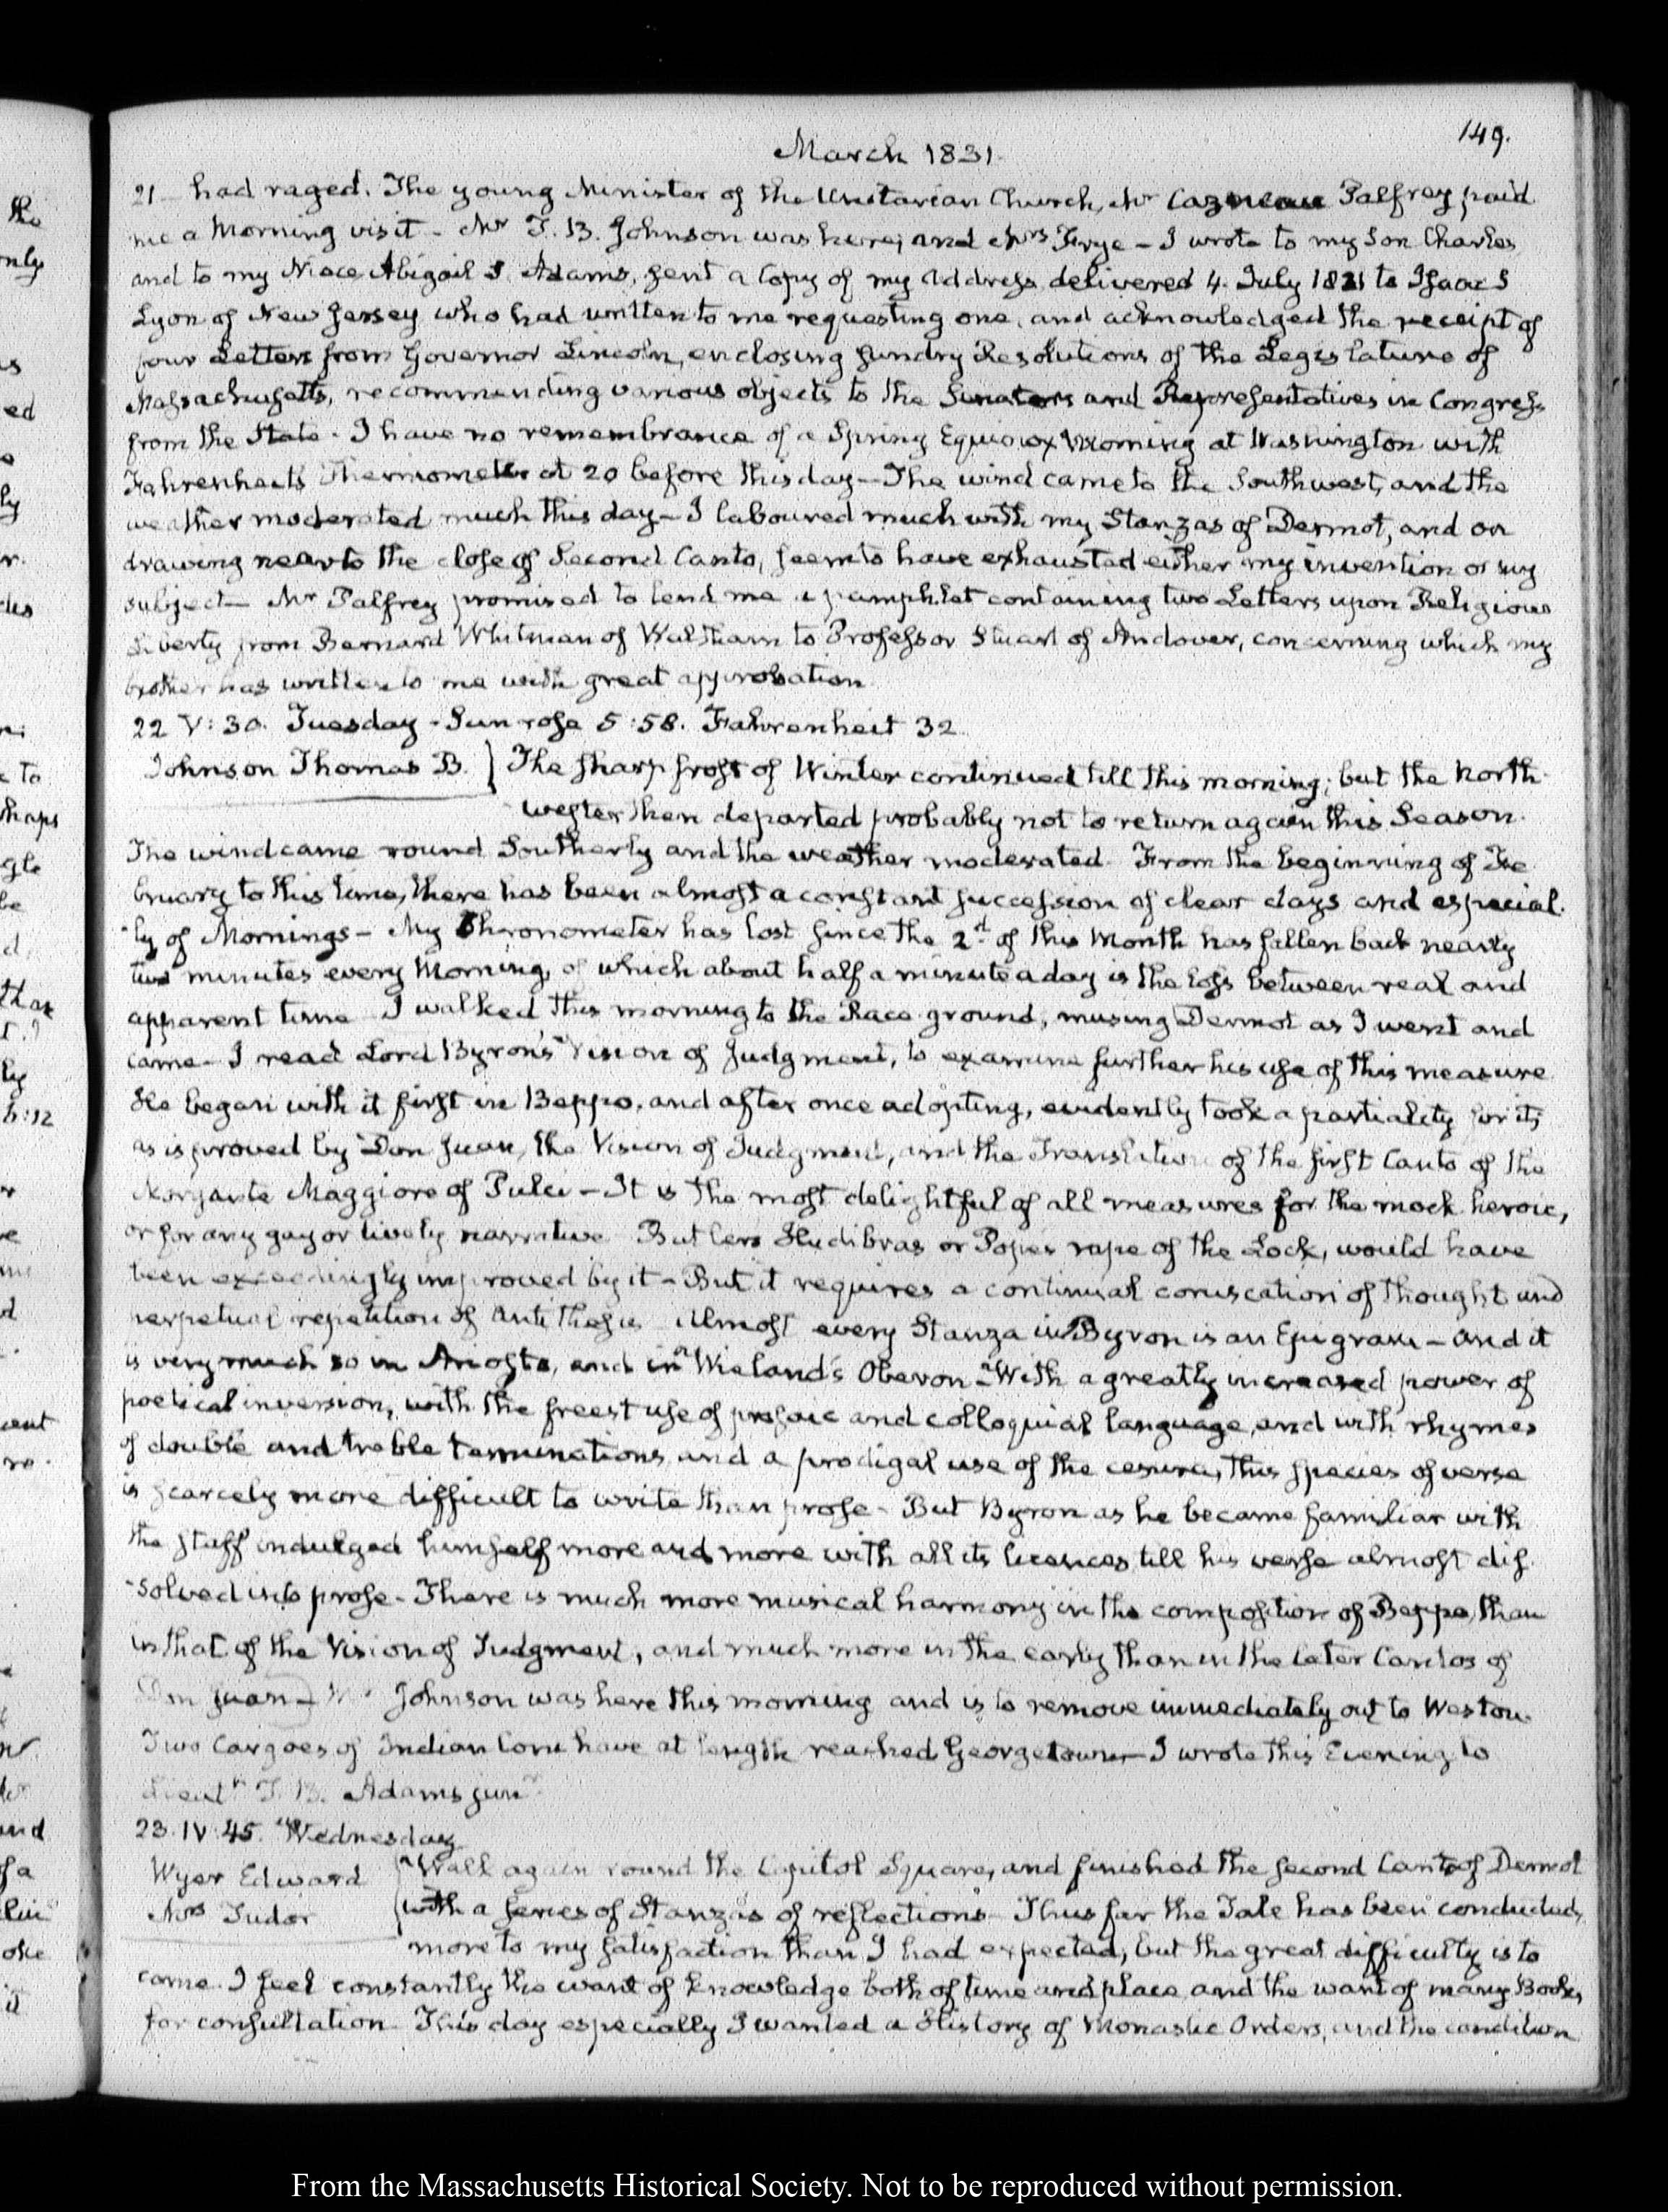 149.
March 1831.
21 had raged. The young Minister of the Unitarian Church, Mr Cazneau Palfrey paid
me a Morning visit - Mr T. B. Johnson was here, and Mrs Frye - I wrote to my Son Charles
and to my Niece Abigail S. Adams, sent a Copy of my Address delivered 4. July 1821 to Isaac S
Lyon of New Jersey who had written to me requesting one, and acknowledged the receipt of
four Letters from Governor Lincoln, enclosing sundry Resolutions of the Legislature of
Massachusetts, recommending various objects to the Senators and Representatives in Congress
from the State - I have no remembrance of a Spring Equinox Morning at Washington with
Fahrenheits Thermometer at 20 before this day - The wind came to the Southwest, and the
weather moderated much this day - I laboured much with my Stanzas of Dermot, and on
drawing near to the close of Second Canto, seem to have exhausted either my invention or my
subject - Mr Palfrey promised to lend me a pamphlet containing two Letters upon Religious
Liberty from Bernard Whitman of Waltham to Professor Stuart of Andover, concerning which my
brother has written to me with great approbation
22 V: 30. Tuesday - Sun rose 5:58. Fahrenheit 32
Johnson Thomas B. } The sharp frost of Winter continued till this morning; but the North-
wester then departed probably not to return again this Season.
The wind came round Southerly and the weather moderated. From the beginning of Fe
bruary to this time, there has been almost a constant succession of clear days and especial-
-ly of Mornings - My Chronometer has lost since the 2d of this Month has fallen back nearly
two minutes every Morning, of which about half a minute a day is the loss between real and
apparent time I walked this morning to the Race ground, musing Dermot as I went and
came - I read Lord Byron's Vision of Judgment, to examine further his use of this measure
He began with it first in Beppo, and after once adopting, evidently took a partiality for it,
as is proved by Don Juan, the Vision of Judgment, and the Translation of the first Canto of the
Morgante Maggiore of Pulci - It is the most delightful of all measures for the mock heroic,
or for any gay or lively narrative Butlers Hudibras or Popes rape of the Lock, would have
been exceedingly improved by it - But it requires a continual coruscation of thought and
perpetual repetition of antithesis Almost every Stanza in Byron is an Epigram - and it
is very much so in Ariosto, and in Wieland's Oberon - With a greatly increased power of
poetical inversion, with the freest use of prosaic and colloquial language, and with rhymes
of double and treble terminations, and a prodigal use of the cesura, this species of verse
is scarcely more difficult to write than prose - But Byron as he became familiar with
the staff indulged himself more and more with all its licences, till his verse almost dis
-solved into prose - There is much more musical harmony in the composition of Beppo, than
in that of the Vision of Judgment, and much more in the early than in the later Cantos of
Don Juan - Mr Johnson was here this morning and is to remove immediately out to Weston
Two Cargoes of Indian Corn have at length reached Georgetown - I wrote this Evening to
Lieutt T. B. Adams junr
23. IV. 45. Wednesday
Wyer Edward } Walk again round the Capitol Square, and finished the second Canto of Dermot
Mrs Tudor } with a series of Stanzas of reflections - Thus far the Tale has been conducted,
more to my satisfaction than I had expected, but the great difficulty is to
come. I feel constantly the want of knowledge both of time and place, and the want of many Books,
for consultation This day especially I wanted a History of Monastic Orders, and the condition
From the Massachusetts Historical Society. Not to be reproduced without permission.